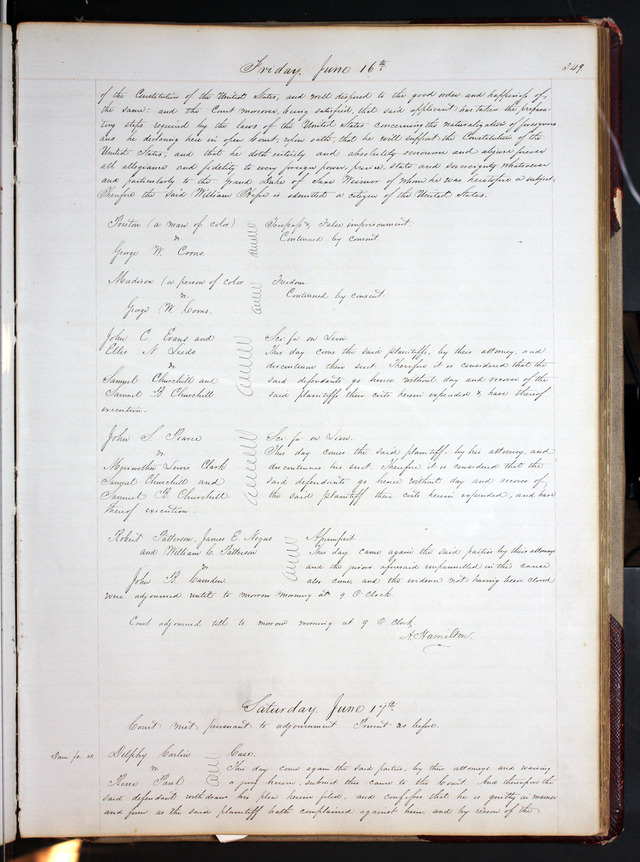 Friday, June 16th 349
of the Constitution of the United States, and well disposed to the good order and happiness of
the same: and the Court moreover, being satisfied, that said applicant has taken the prepara-
tory steps required by the laws of the United States concerning the naturalization of foreigners
and he declaring here in open Court, upon oath, that he will support the Constitution of the
United States, and that he doth entirely and absolutely renounce and abjure forever
all allegiance and fidelity to every foreign power, prince, state and sovereignty whatsoever
and particularly to the Grand Duke of Saxe Weimar of whom he was heretofore a subject,
Therefore the said William is admitted a citizen of the United States.
Preston (a man of color) Trespass & False imprisonment.
vs Continued by consent
George W. Coons.
Madison (a person of color Freedom
vs Continued by consent.
George W. Coons.
John C. Evans and Sci. fa. on Lien.
Ellis N Leeds This day come the said plaintiffs, by their attorney, and
vs discontinue their suit. Therefore it is considered that the
Samuel Churchill and said defendants go hence without day and recover of the
Samuel B Churchill said plaintiffs their costs herein expended & have thereof
execution.
John S. Pearce Sci. fa. on Lien.
vs This day comes the said plaintiff, by his attorney, and
Meriwether Lewis Clark discontinues his suit. Therefore it is considered that the
Samuel Churchill and said defendants go hence without day and recover of
Samuel B. Churchill the said plaintiff their costs herein expended, and have
thereof execution.
Robert Patterson, James E. Negus Assumpsit
and William C. Patterson This day came again the said parties by their attorneys
vs and the jurors aforesaid empannelled in this cause
John B. Camden also come, and the evidence not having been closed
were adjourned until to morrow morning at 9 O Clock
Court adjourned till to morrow morning at 9 O Clock
A. Hamilton.
Saturday, June 17th
Court met pursuant to adjournment. Present as before.
Delphy Carlin Case.
vs This day come again the said parties, by their attorneys and waiving
Rene Paul a jury herein, submit this cause to the Court. And thereupon the
said defendant withdraws his plea herein filed, and confesses that he is guilty in manner
and form as the said plaintiff hath complained against him, and by reason of the